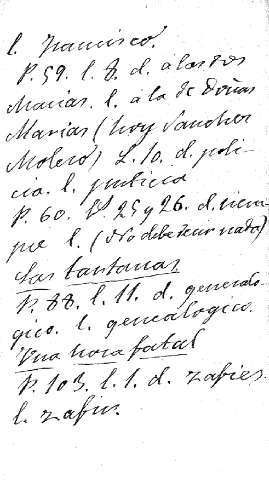 l. Francisco.
P. 59. l. 8. d. á las dos
Marias. l. á la de Doñas
Marias (hoy Sanchez
Molero) L. 10. d. poli-
cia. l. justicia
P. 60. L. 25 y 26. d. siem-
pre l. (No debe decir nada)
Las tantanas
P. 88. l. 11. d. generalo-
gico. l. genealogico.
Una hora fatal
P. 103. l. 1. d. zafies.
l. zafios.